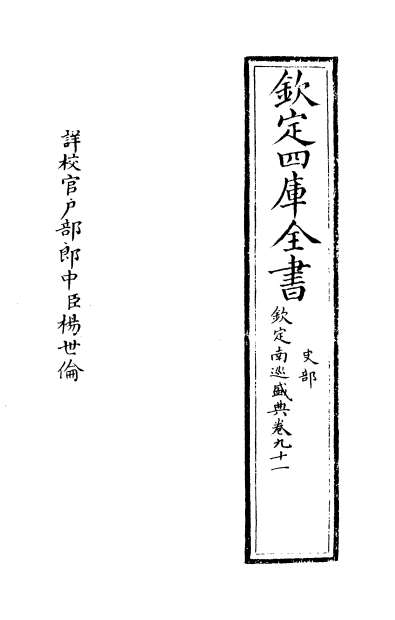 欽定四庫全書
史部
欽定南巡盛典卷九十一
詳校官户部郎中臣楊世倫